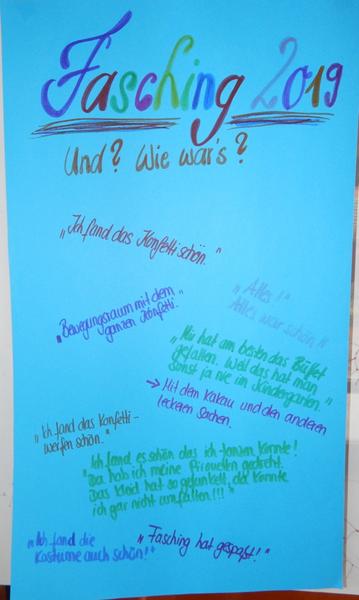 Fasching 2019
Und? Wie war's?
„Ich fand das Konfetti schön."
„Alles!
Alles war schön."
„Bewegungsraum mit dem
ganzen Konfetti."
„Mir hat am besten das Büfett
gefallen. Weil das hat man
sonst ja nie im Kindergarten."
→ Mit dem Kakau und den anderen
leckeren Sachen.
„Ich fand das Konfetti-
werfen schön."
„Ich fand es schön das ich tanzen konnte!
Da hab ich meine Pirouetten gedreht.
Das Kleid hat so gefunkelt, da konnte
ich gar nicht umfallen!!!"
„Ich fand die
Kostüme auch schön!"
„Fasching hat gespaßt!"